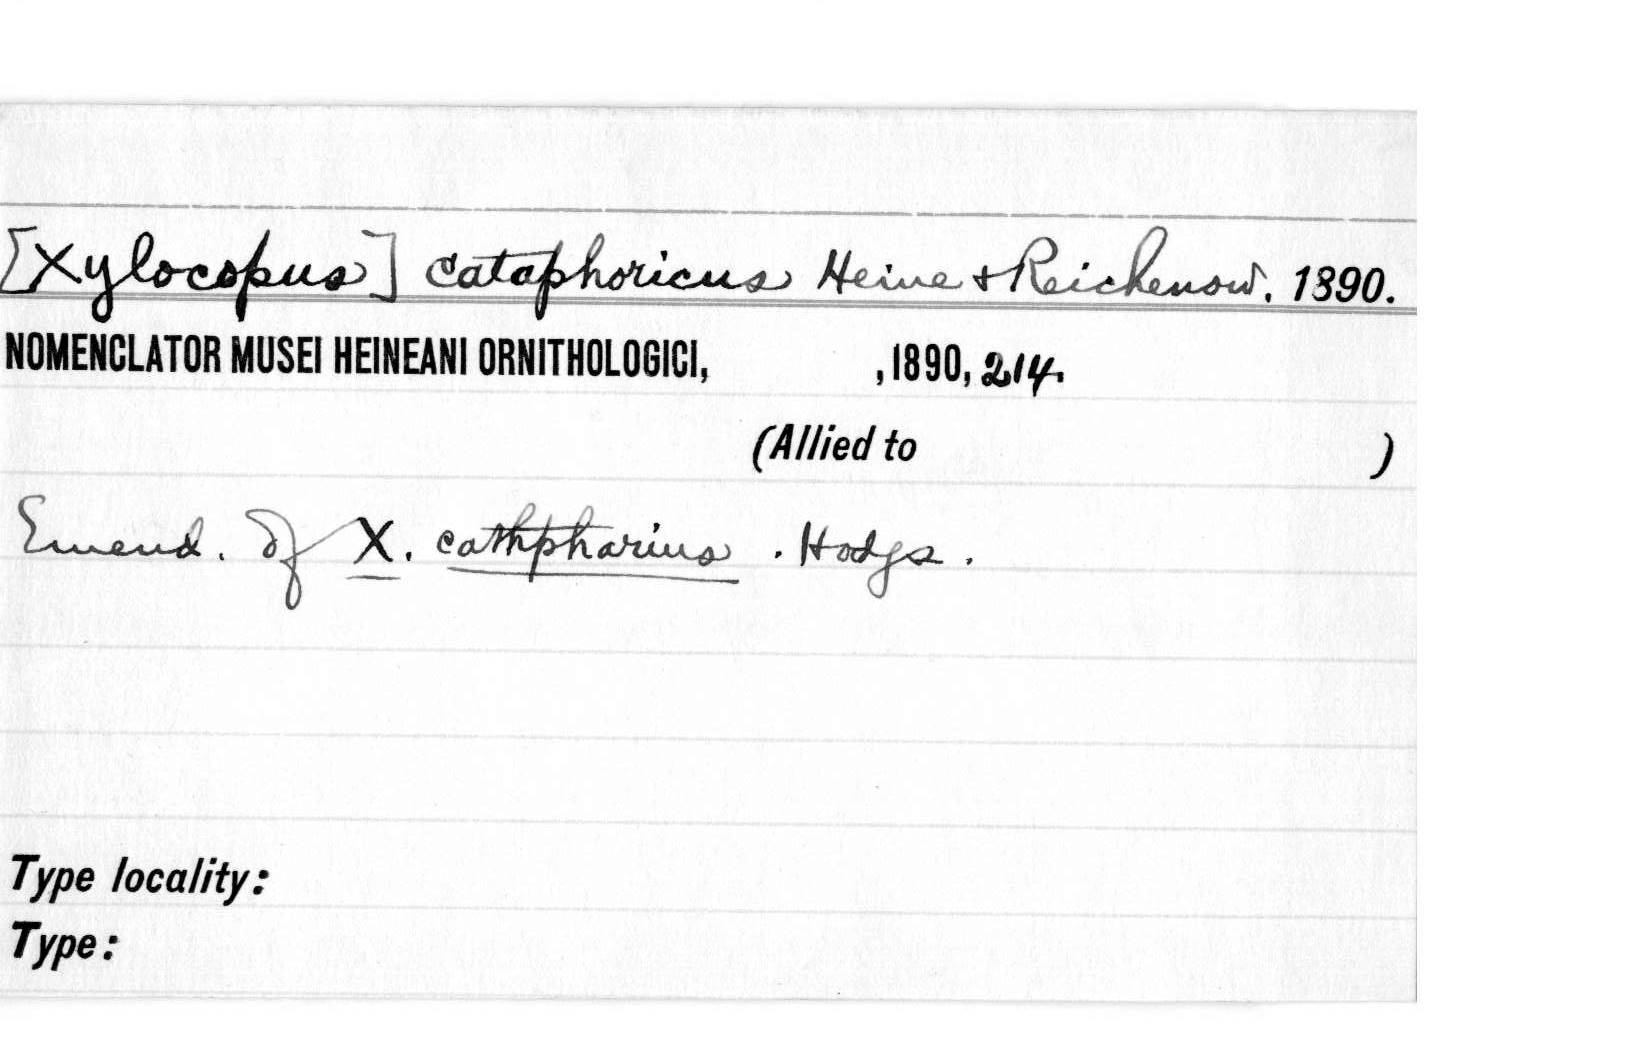 [Xylocopus] cataphoricus Heine & Reichenow, 1890.
NOMENCLATOR MUSEI HEINEANI ORNITHOLOGICI, , 1890, 214.
(Allied to )
Emend. of X. cathpharius . Hodgs .
Type locality:
Type: